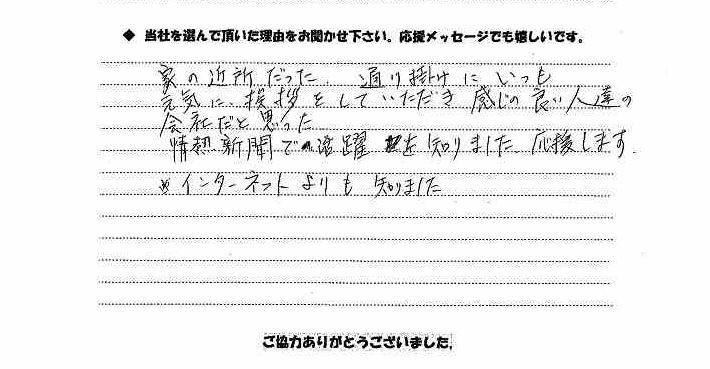 ◆ 当社を選んで頂いた理由をお聞かせ下さい。応援メッセージでも嬉しいです。
家の近所だった. 通り掛けにいつも
元気に、挨拶をしていただき 感じの良い人達の
会社だと思った
情報新聞で活躍を知りました 応援します.
※インターネットよりも 知りました
ご協力ありがとうございました。